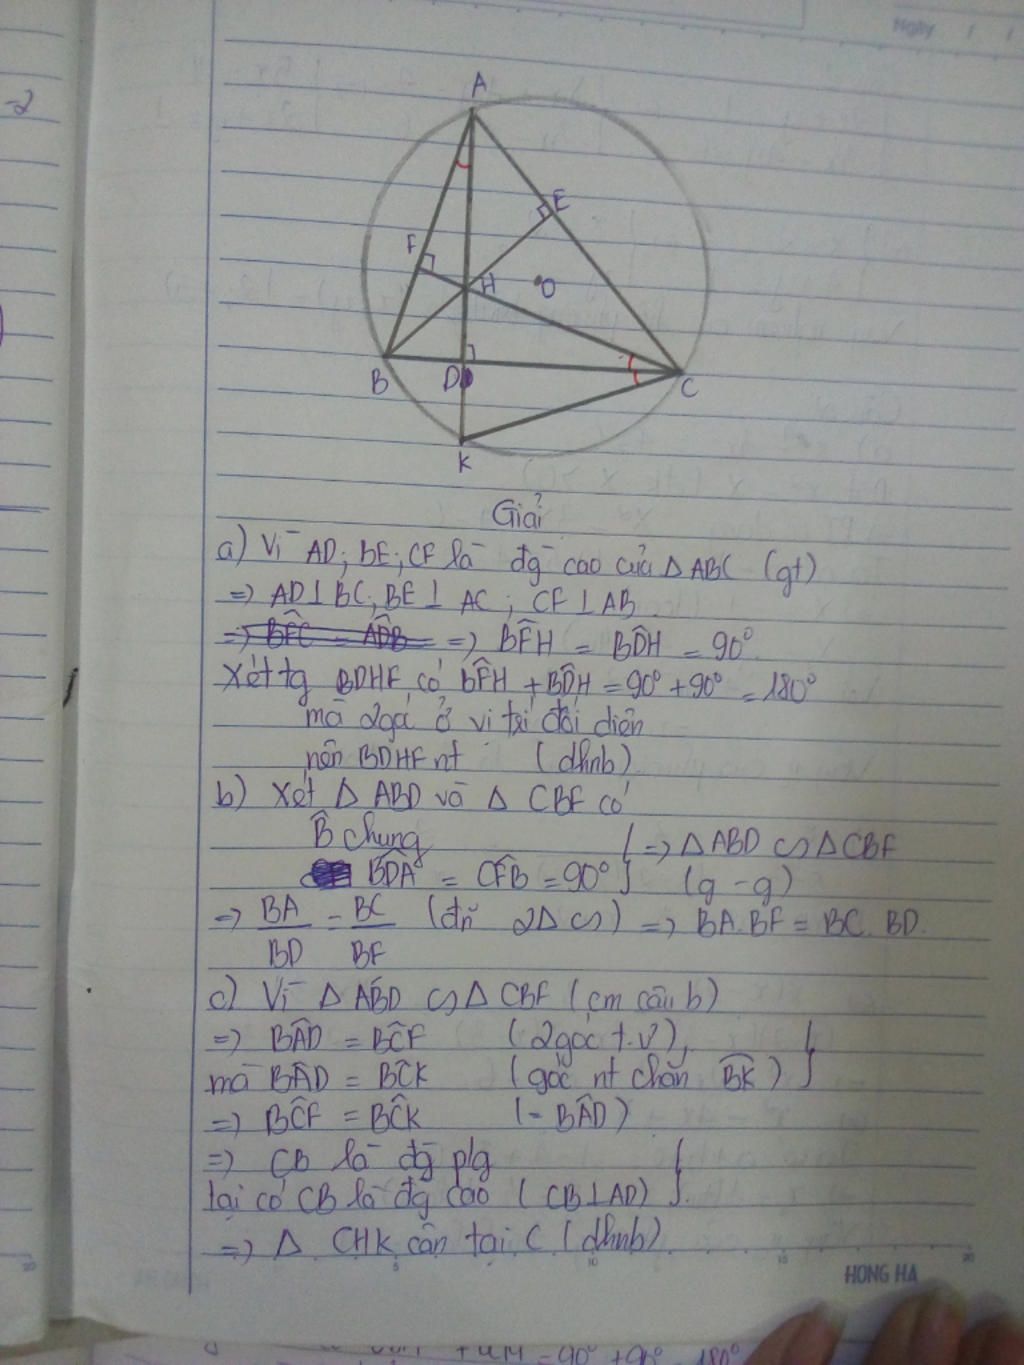 Ngày / /
=2
A
E
F
H
O
B
D
C
K
Giải
a) Vì AD; BE; CF là đg cao của Δ ABC (gt)
=> AD ⊥ BC; BE ⊥ AC; CF ⊥ AB
=> BFC = ADB => BF̂H = BD̂H = 90°
Xét tg BDHF có BF̂H + BD̂H = 90° + 90° = 180°
mà 2 góc ở vị trí đối diện
nên BDHF nt (dhnb)
b) Xét Δ ABD và Δ CBF có
B̂ chung } => Δ ABD ∽ Δ CBF
BD̂A = CF̂B = 90° (g - g)
=> BA/BD = BC/BF (đn 2Δ ∽) => BA. BF = BC. BD.
c) Vì Δ ABD ∽ Δ CBF (cm câu b)
=> BÂD = BĈF (2 góc t.ứ)
mà BÂD = BĈK (góc nt chắn BK)
=> BĈF = BĈK (= BÂD)
=> CB là đg plg
lại có CB là đg cao (CB ⊥ AD)
=> Δ CHK cân tại C (dhnb)
5 10 15 20
HONG HA